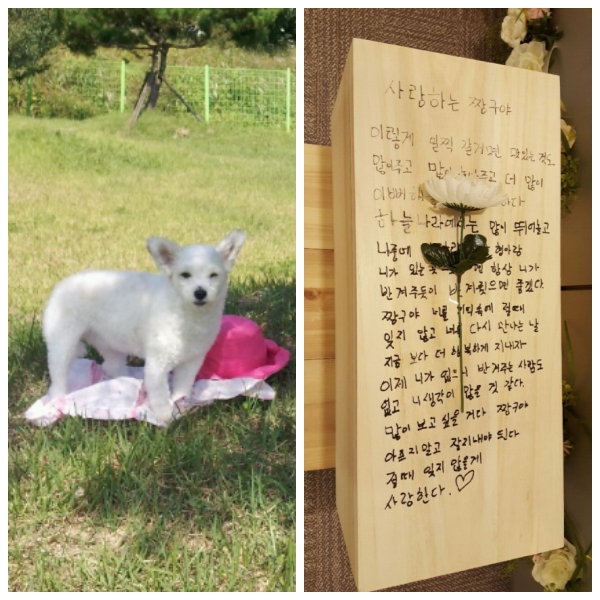 사랑하는 짱구야
이렇게 일찍 갈거면 맛있는 것도
많이주고 많이 놀아주고 더 많이
이뻐해
하늘나라에서는 많이 뛰어놀고
나중에 형아랑
니가 있는 항상 니가
반겨주듯이 반겨줬으면 좋겠다.
짱구야 너를 기억속에 절때
잊지 않고 너를 다시 만나는 날
지금 보다 더 행복하게 지내자
이제 니가 없으니 반겨주는 사람도
없고 니생각이 많을 것 같다.
많이 보고싶을 거다 짱구야
아프지말고 잘지내야 된다
절때 잊지 않을게
사랑한다.♡